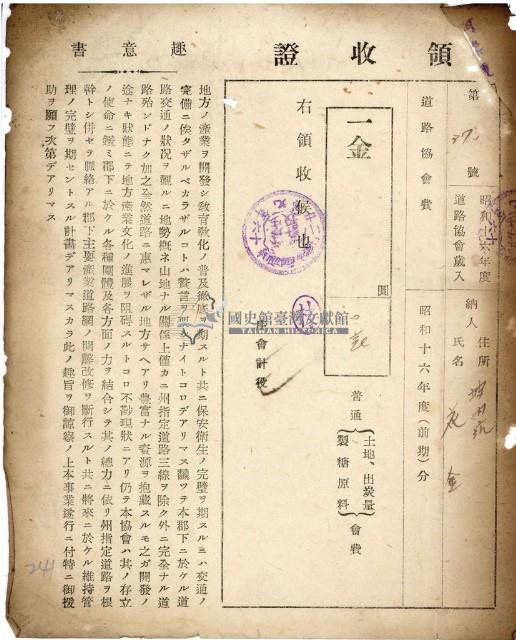 領收證
第 號
昭和十六年度
道路協會歲入
納人
住所
氏名
金
道路協會費
昭和十六年度(前期)分
一金
圓
普通
土地、出炭量
製糖原料
會費
右領收候也
會計役
國史館臺灣文獻館
TAIWAN HISTORICA
趣意書
地方ノ產業ヲ開發シ敎育敎化ノ普及徹底ヲ期スルト共ニ保安衞生ノ完璧ヲ期スルニハ交通ノ
完備ニ俟タザルベカラザルコトハ贅言ヲ要セナイトコロデアリマス飜ツテ本郡下ニ於ケル道
路交通ノ狀況ヲ觀ルニ地勢槪ネ山地ナル關係上僅カニ州指定道路三線ヲ除ク外ニ完全ナル道
路殆ンドナク加之全然道路ニ惠マレザル地方サヘアリ豐富ナル資源ヲ抱藏スルモ之ガ開發ノ
途ナキ狀態ニテ地方產業文化ノ進展ヲ阻碍スルトコロ不尠現狀ニアリ仍テ本協會ハ其ノ存立
ノ使命ニ鑑ミ郡下ニ於ケル各種團體及各方面ノ力ヲ結合シテ其ノ總力ニ依リ州指定道路ヲ根
幹トシ併セテ脈絡アル郡下主要產業道路網ノ開鑿改修ヲ斷行スルト共ニ將來ニ於ケル維持管
理ノ完璧ヲ期セントスル計畫デアリマスカラ此ノ趣旨ヲ御諒察ノ上本事業遂行ニ付特ニ御援
助ヲ願フ次第デアリマス
241